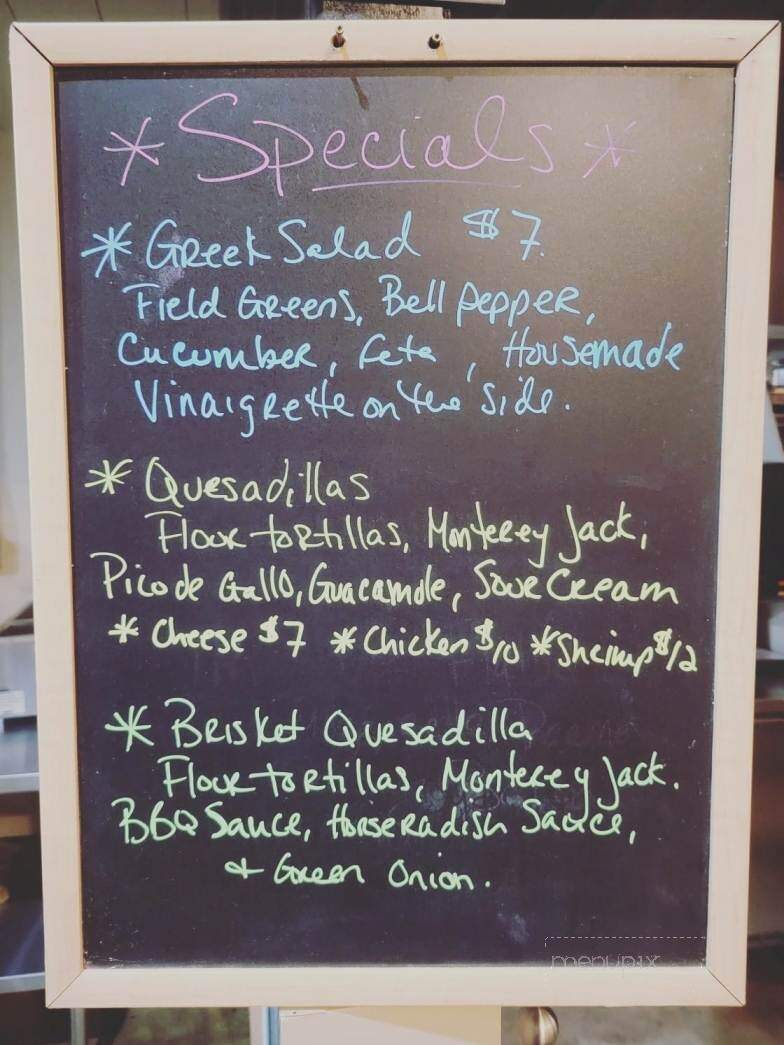 * Specials *
* Greek Salad $7.
Field Greens, Bell pepper,
Cucumber, feta, Housemade
Vinaigrette on the side.
* Quesadillas
Flour tortillas, Monterey Jack,
Pico de Gallo, Guacamole, Sour Cream
* Cheese $7 * Chicken $10 * Shrimp $12
* Brisket Quesadilla
Flour tortillas, Monterey Jack.
BBQ Sauce, Horseradish Sauce,
& Green Onion.
menupix